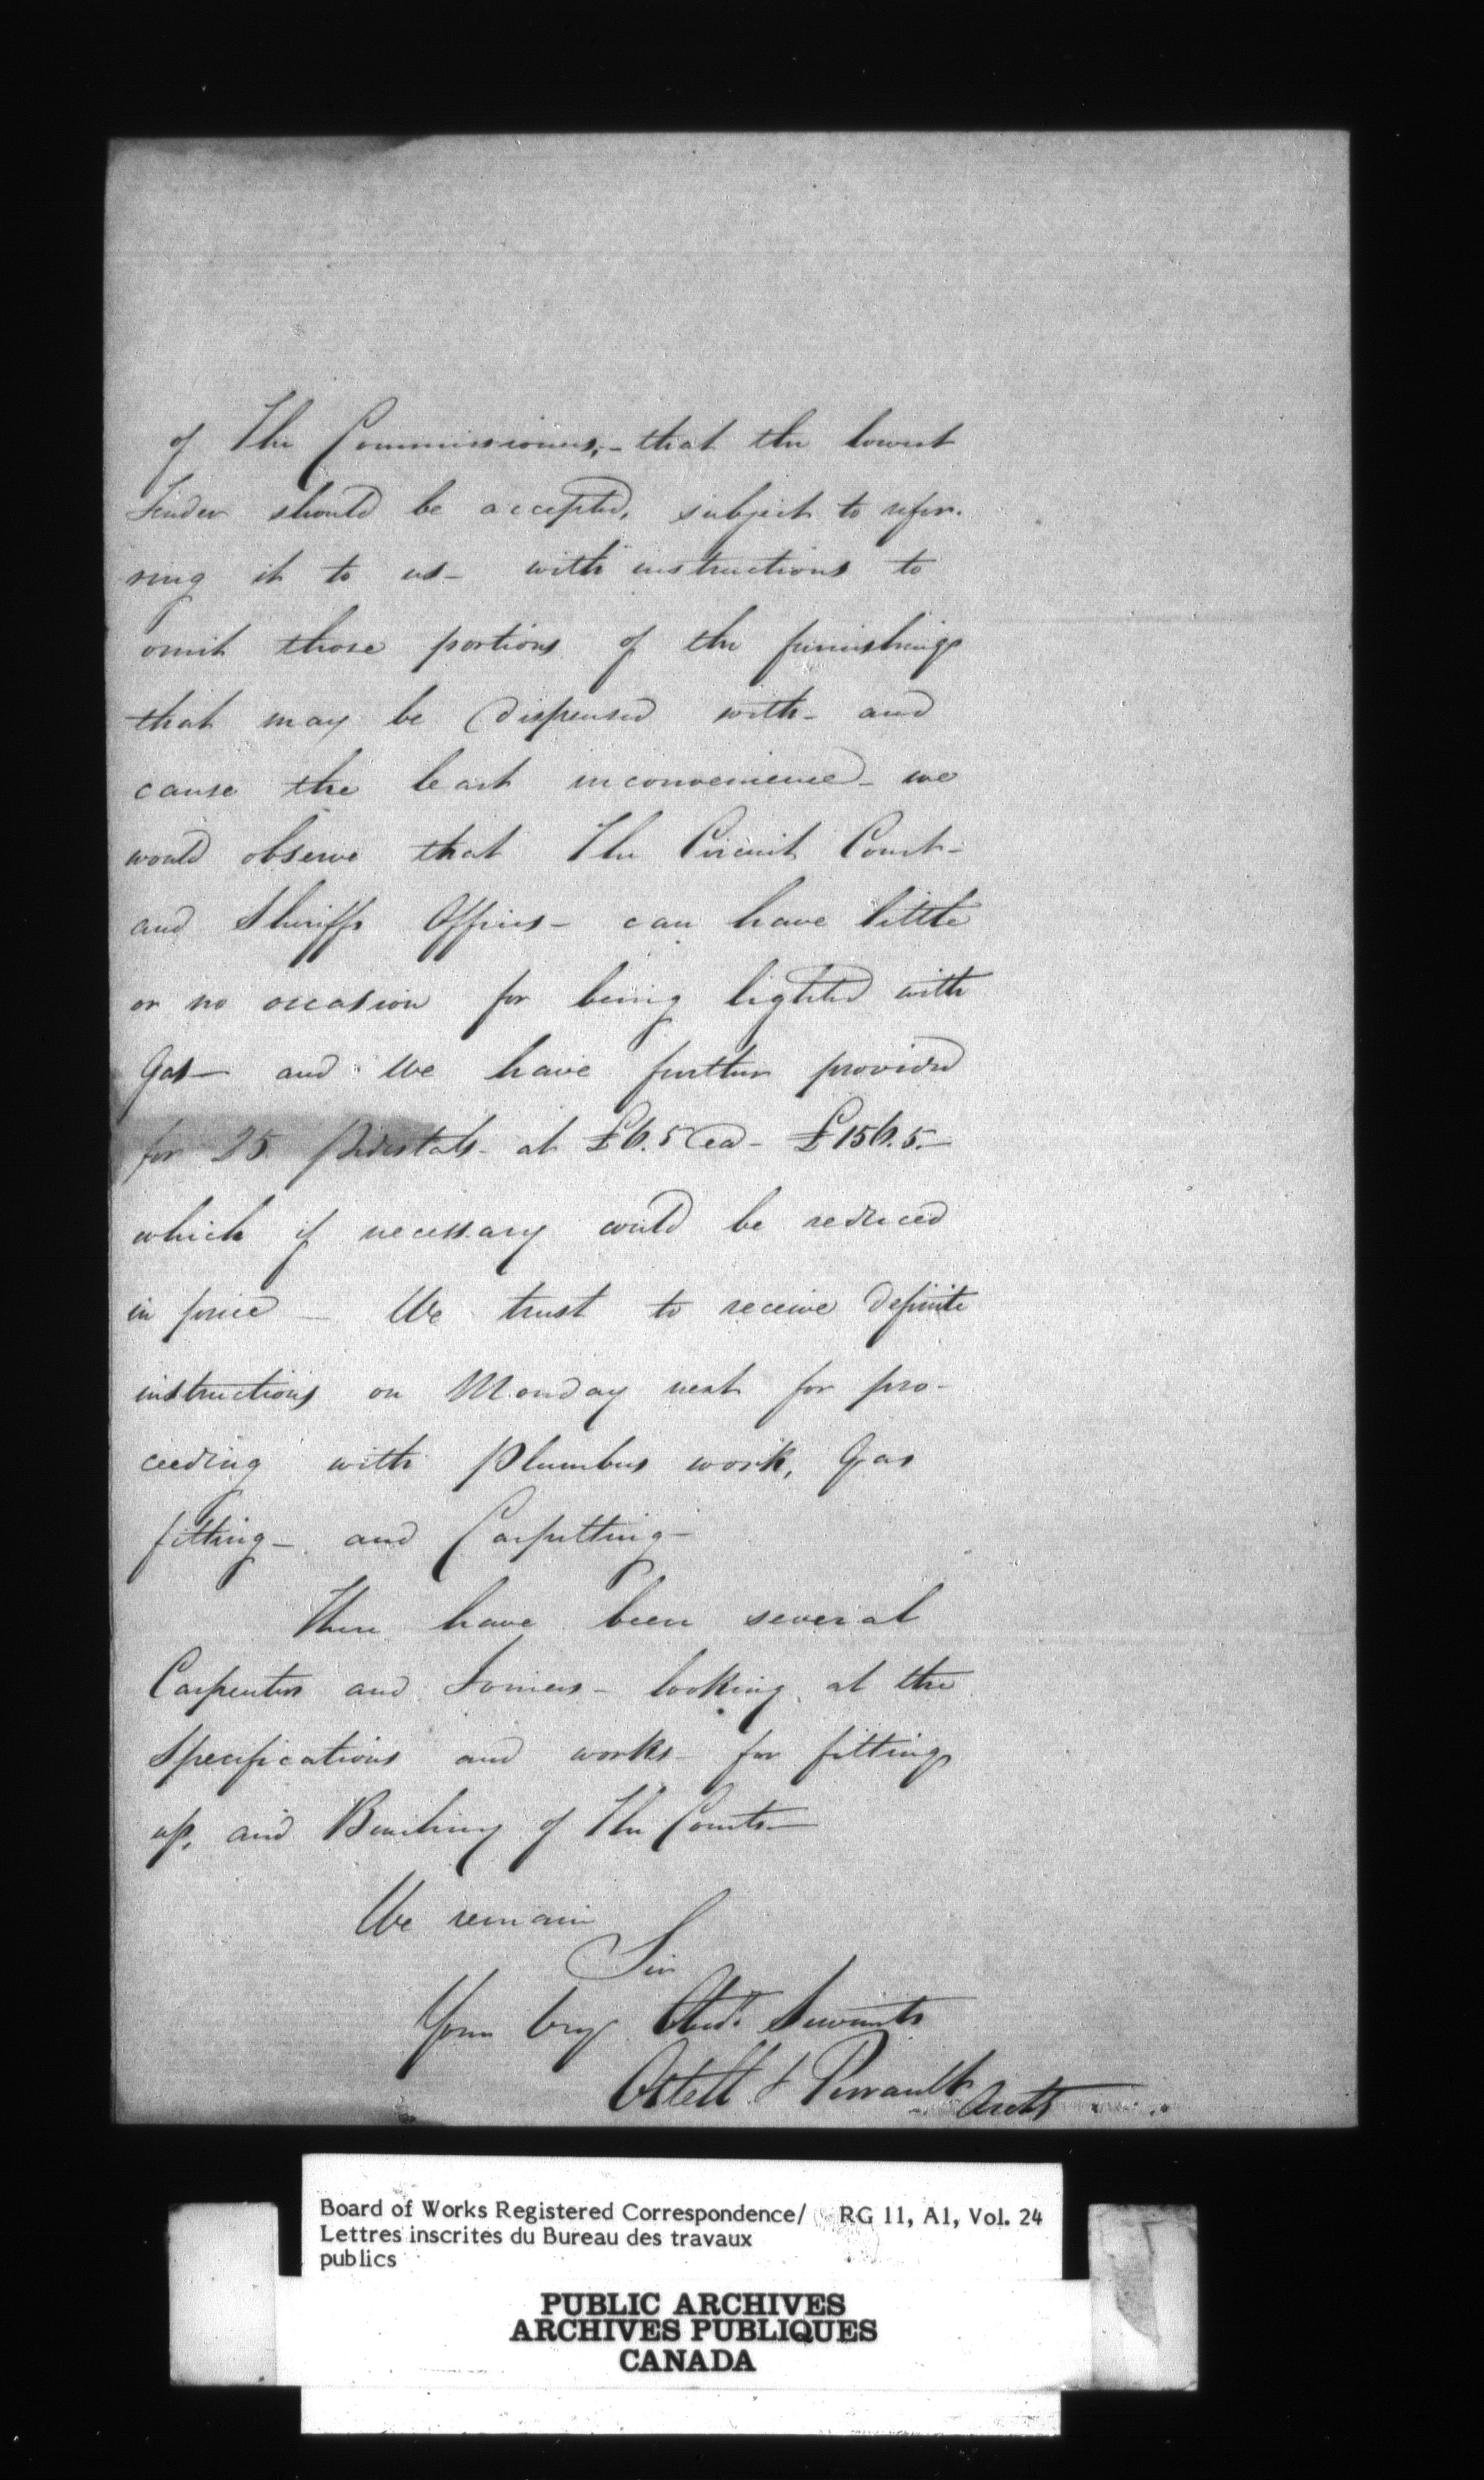 of The Commissioners,- that the lowest
Tender should be accepted, subject to refer-
ring it to us - with instructions to
omit those portions of the furnishings
that may be dispensed with - and
cause the least inconvenience - we
would observe that The Circuit Court -
and Sheriffs Offices - can have little
or no occasion for being lighted with
Gas - and We have further provided
for 25 Pedestals - at £6.5 ea - £156.5.-
which if necessary could be reduced
in price - We trust to receive definite
instructions on Monday next for pro-
ceeding with Plumbers work, Gas
fitting - and Carpetting -
There have been several
Carpenters and Joiners - looking at the
Specifications and works for fitting
up, and Benching of The Courts -
We remain
Sir
Your Very Obedt Servants
Ostell & Perrault Archts
Board of Works Registered Correspondence/ RG 11, A1, Vol. 24
Lettres inscrites du Bureau des travaux
publics
PUBLIC ARCHIVES
ARCHIVES PUBLIQUES
CANADA